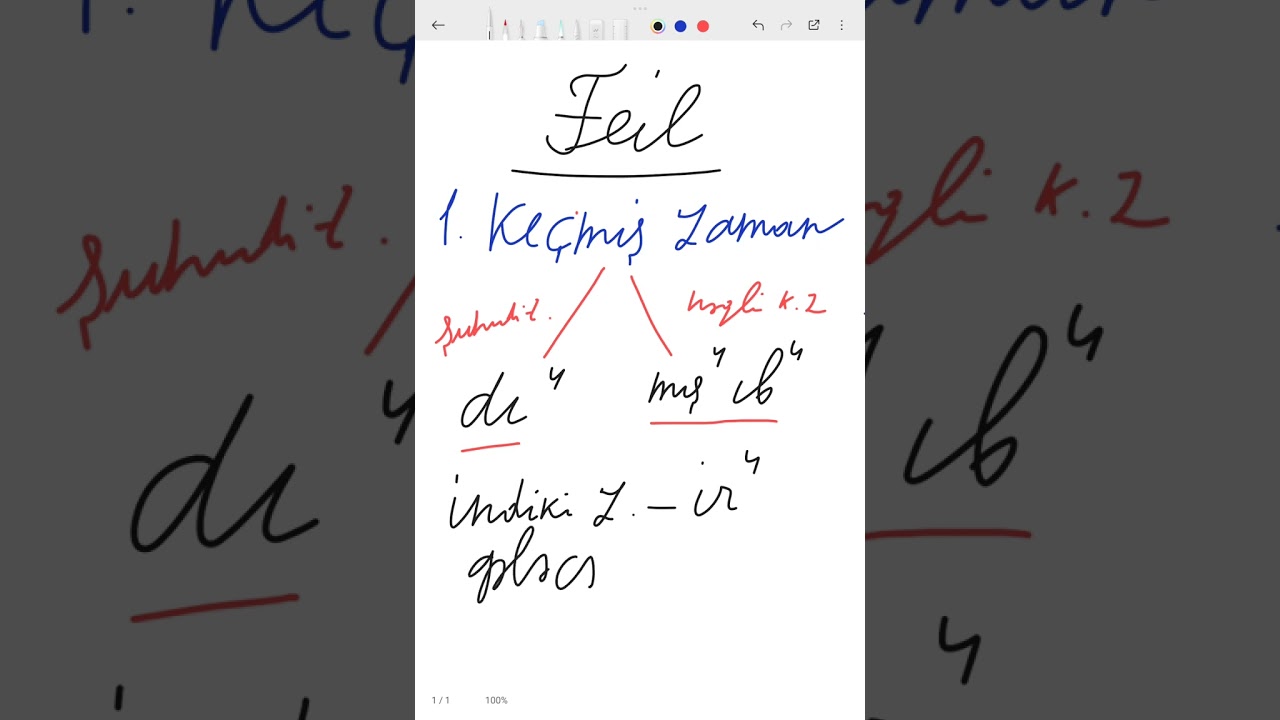 Feil
1. Keçmiş zaman
Şuhudi z.
nəqli k.z
dı⁴
mış⁴ ıb⁴
indiki z. – ir⁴
gələcə
1 / 1
100%